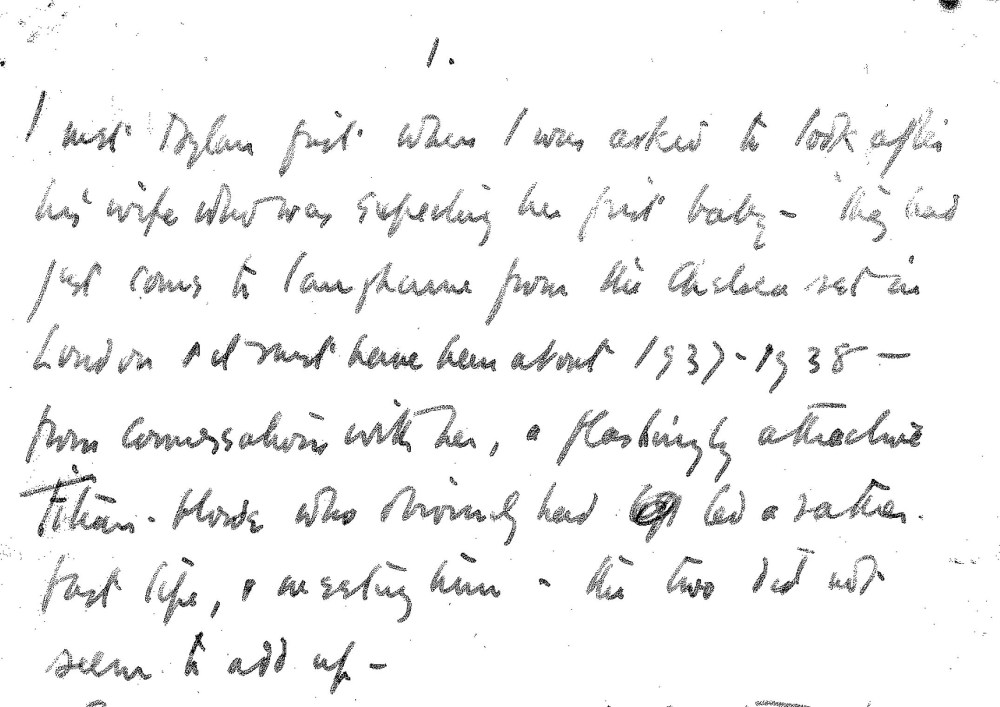 1.
I met Dylan first when I was asked to look after
his wife who was expecting her first baby - they had
just come to Laugharne from the Chelsea set in
London & it must have been about 1937-1938 —
from conversations with her, a flashingly attractive
Titian-blonde who obviously had led a rather
fast life, & meeting him - the two did not
seem to add up -